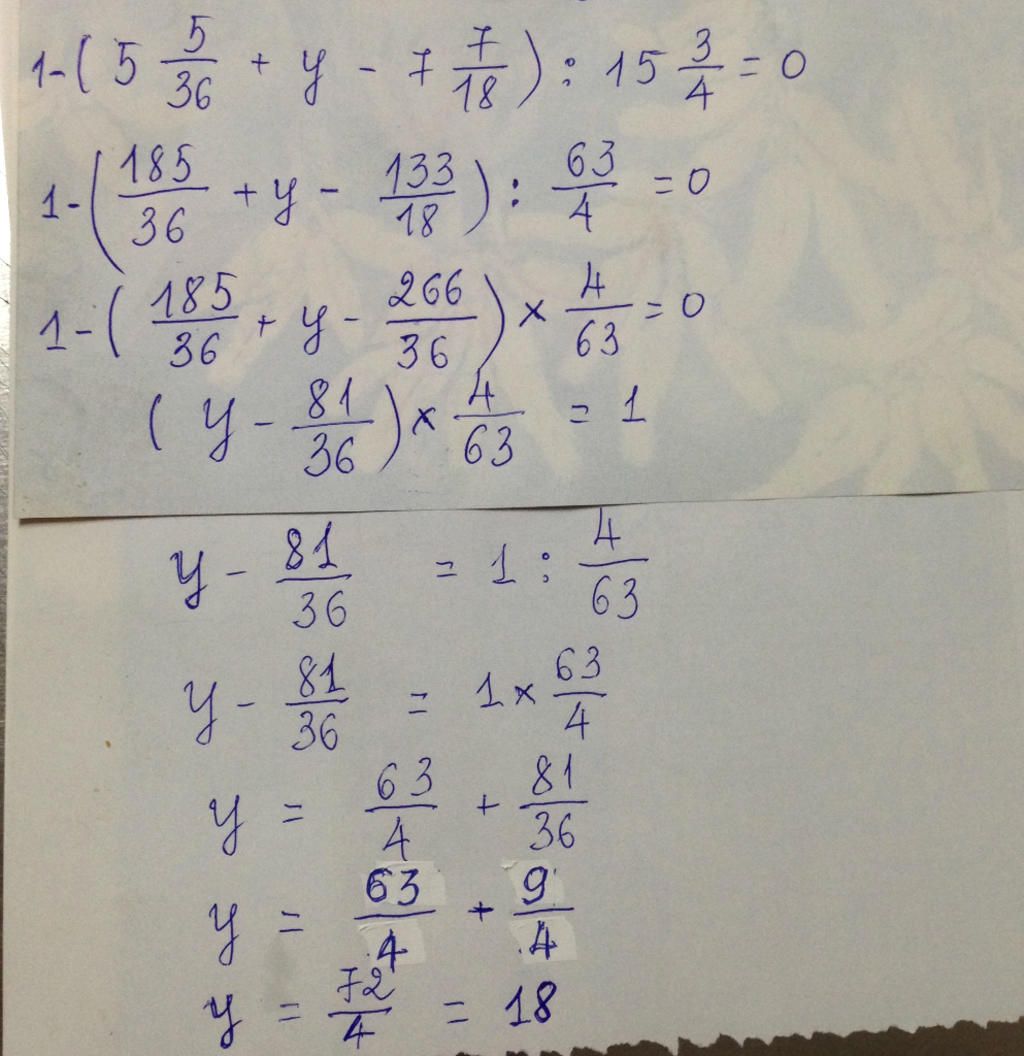 1-(5 5/36 + y - 7 7/18) : 15 3/4 = 0
1-(185/36 + y - 133/18) : 63/4 = 0
1-(185/36 + y - 266/36) × 4/63 = 0
(y - 81/36) × 4/63 = 1
y - 81/36 = 1 : 4/63
y - 81/36 = 1 × 63/4
y = 63/4 + 81/36
y = 63/4 + 9/4
y = 72/4 = 18